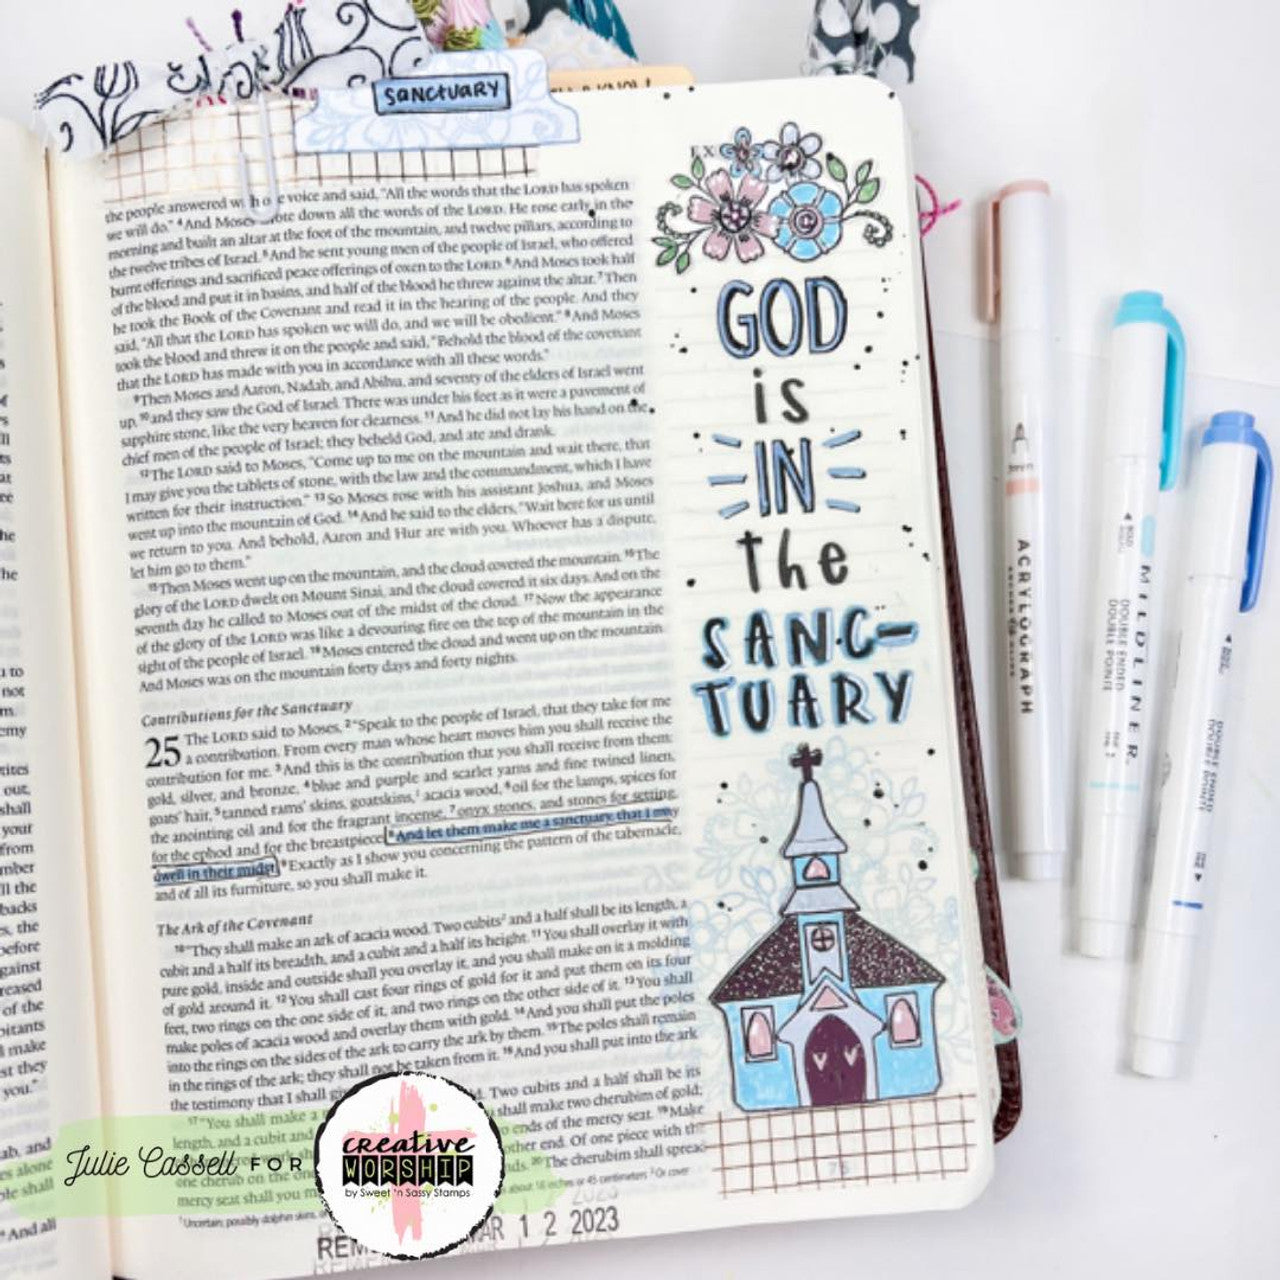 SANCTUARY
EX
the people answered with one voice and said, "All the words that the LORD has spoken
we will do." 4And Moses wrote down all the words of the LORD. He rose early in the
morning and built an altar at the foot of the mountain, and twelve pillars, according to
the twelve tribes of Israel. 5And he sent young men of the people of Israel, who offered
burnt offerings and sacrificed peace offerings of oxen to the LORD. 6And Moses took half
of the blood and put it in basins, and half of the blood he threw against the altar. 7Then
he took the Book of the Covenant and read it in the hearing of the people. And they
said, "All that the LORD has spoken we will do, and we will be obedient." 8And Moses
took the blood and threw it on the people and said, "Behold the blood of the covenant
that the LORD has made with you in accordance with all these words."
9Then Moses and Aaron, Nadab, and Abihu, and seventy of the elders of Israel went
up, 10and they saw the God of Israel. There was under his feet as it were a pavement of
sapphire stone, like the very heaven for clearness. 11And he did not lay his hand on the
chief men of the people of Israel; they beheld God, and ate and drank.
12The LORD said to Moses, "Come up to me on the mountain and wait there, that
I may give you the tablets of stone, with the law and the commandment, which I have
written for their instruction." 13So Moses rose with his assistant Joshua, and Moses
went up into the mountain of God. 14And he said to the elders, "Wait here for us until
we return to you. And behold, Aaron and Hur are with you. Whoever has a dispute,
let him go to them."
15Then Moses went up on the mountain, and the cloud covered the mountain. 16The
glory of the LORD dwelt on Mount Sinai, and the cloud covered it six days. And on the
seventh day he called to Moses out of the midst of the cloud. 17Now the appearance
of the glory of the LORD was like a devouring fire on the top of the mountain in the
sight of the people of Israel. 18Moses entered the cloud and went up on the mountain.
And Moses was on the mountain forty days and forty nights.
Contributions for the Sanctuary
25 The LORD said to Moses, 2"Speak to the people of Israel, that they take for me
a contribution. From every man whose heart moves him you shall receive the
contribution for me. 3And this is the contribution that you shall receive from them:
gold, silver, and bronze, 4blue and purple and scarlet yarns and fine twined linen,
goats' hair, 5tanned rams' skins, goatskins, acacia wood, 6oil for the lamps, spices for
the anointing oil and for the fragrant incense, 7onyx stones, and stones for setting,
for the ephod and for the breastpiece. 8And let them make me a sanctuary, that I may
dwell in their midst. 9Exactly as I show you concerning the pattern of the tabernacle,
and of all its furniture, so you shall make it.
The Ark of the Covenant
10"They shall make an ark of acacia wood. Two cubits and a half shall be its length, a
cubit and a half its breadth, and a cubit and a half its height. 11You shall overlay it with
pure gold, inside and outside shall you overlay it, and you shall make on it a molding
of gold around it. 12You shall cast four rings of gold for it and put them on its four
feet, two rings on the one side of it, and two rings on the other side of it. 13You shall
make poles of acacia wood and overlay them with gold. 14And you shall put the poles
into the rings on the sides of the ark to carry the ark by them. 15The poles shall remain
in the rings of the ark; they shall not be taken from it. 16And you shall put into the ark
the testimony that I shall
17"You shall make a Two cubits and a half shall be its
length, and a cubit and shall make two cherubim of gold;
ends of the mercy seat. 19Make
one cherub on the other end. Of one piece with the
mercy seat shall 20The cherubim shall spread
GOD
is
IN
the
SANC-
TUARY
75
ACRYLOGRAPH
MILDLINER
DOUBLE ENDED
DOUBLE POINTE
DOUBLE ENDED
Julie Cassell FOR
creative
WORSHIP
by Sweet 'n Sassy Stamps
MAR 1 2 2023